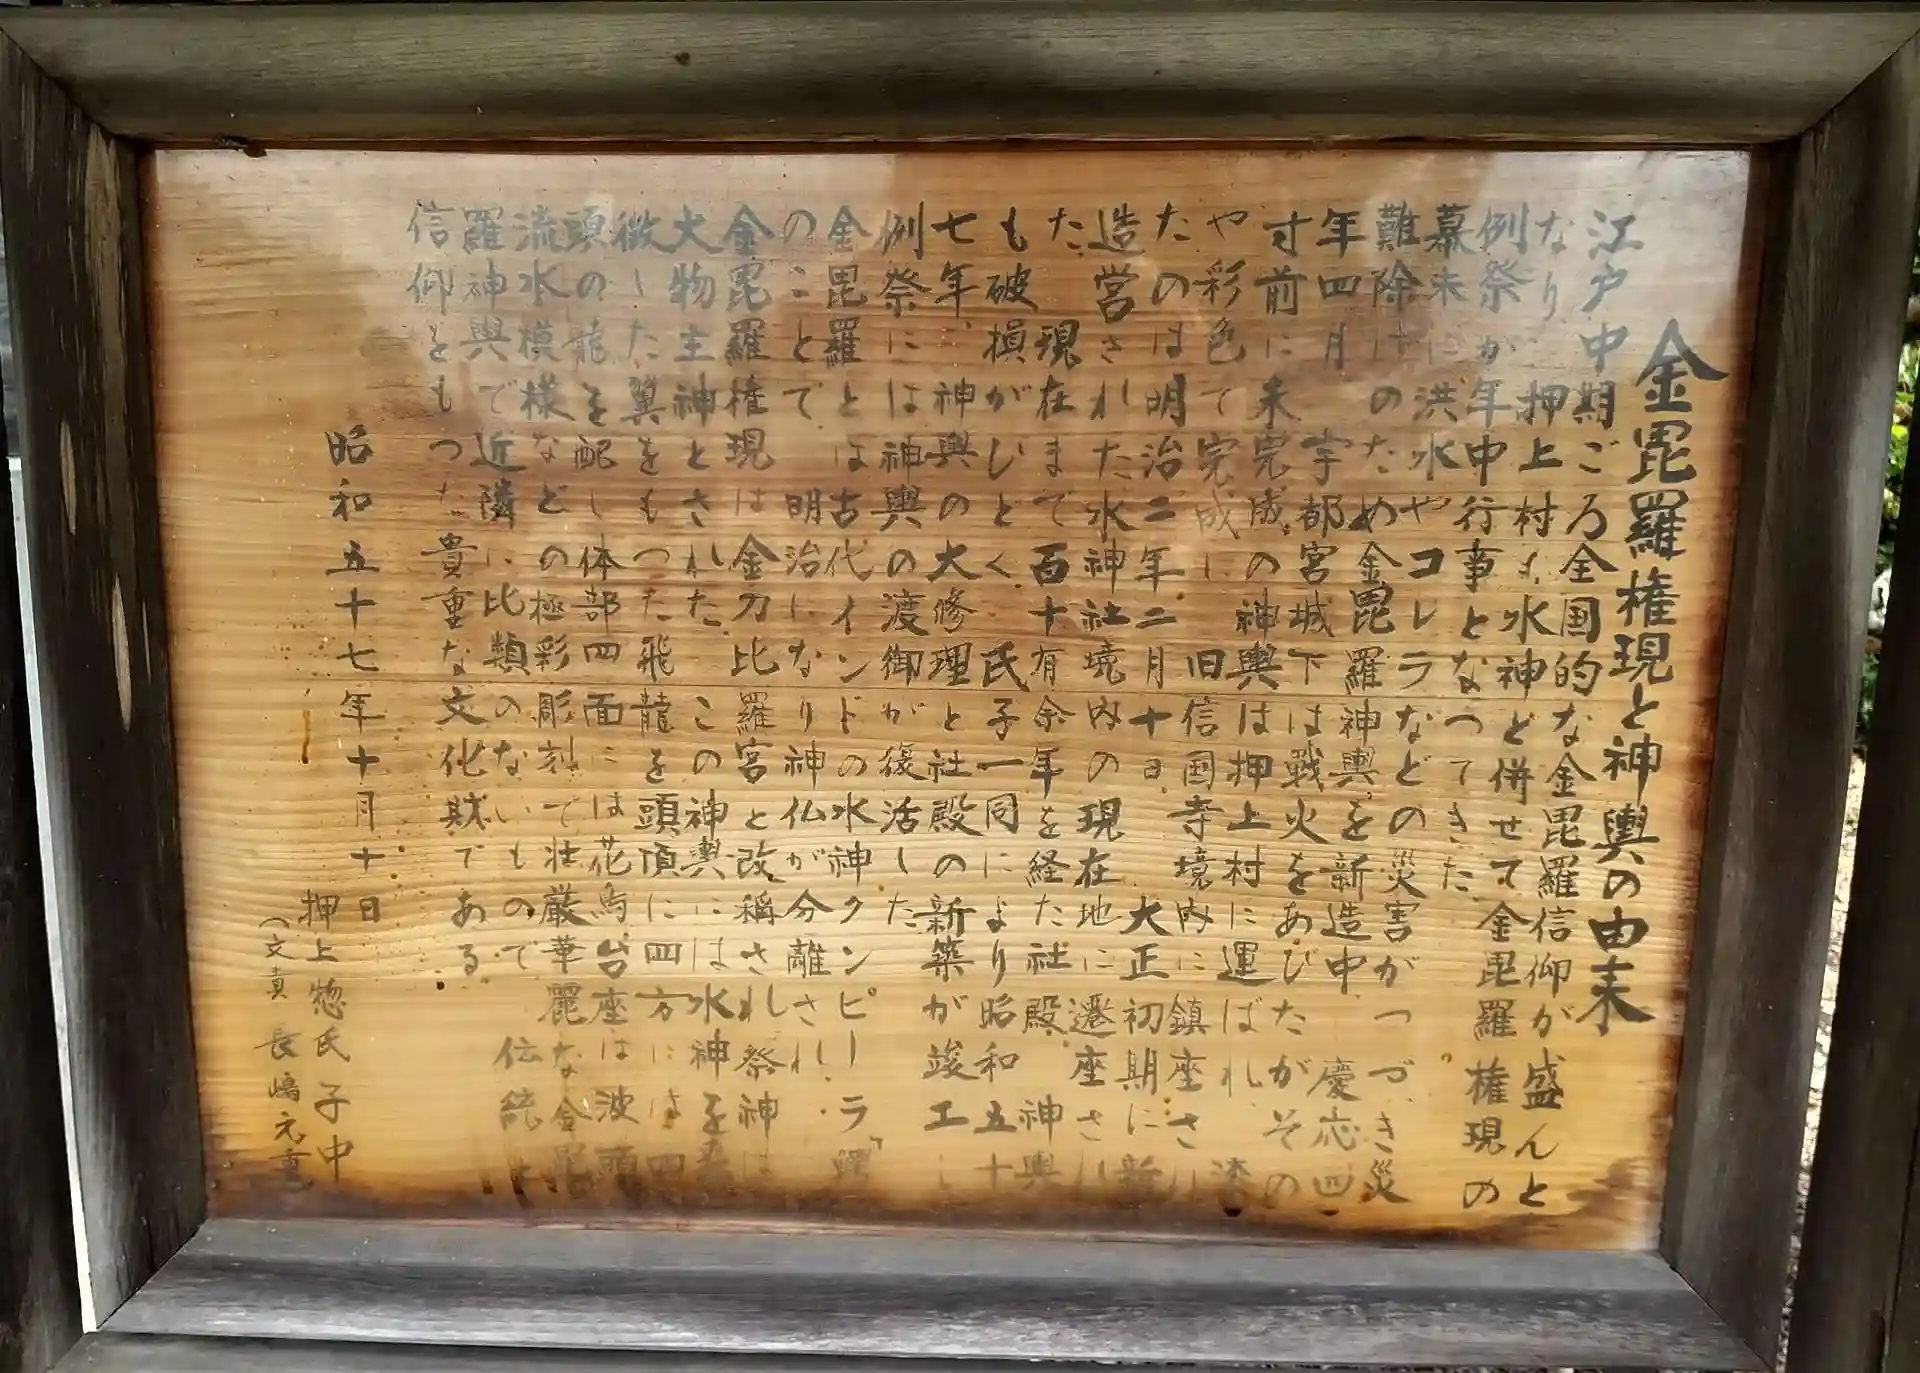 金毘羅権現と神輿の由来
江戸中期ごろ全国的な金毘羅信仰が盛んと
なり 押上村も水神と併せて金毘羅権現の
例祭が年中行事となつてきた。
幕末に洪水やコレラなどの災害がつづき災
難除けのため金毘羅神輿を新造中 慶応四
年四月 宇都宮城下は戦火をあびたがその
寸前に未完成の神輿は押上村に運ばれ 漆
や彩色で完成し 旧信国寺境内に鎮座され
たのは明治二年二月十日 大正初期に新
造営された水神社境内の現在地に遷座され
た 現在まで百十有余年を経た社殿 神輿
も破損がひどく 氏子一同により昭和五十
七年 神輿の大修理と社殿の新築が竣工し
例祭には神輿の渡御が復活した
金毘羅とは古代インドの水神クンピーラ「鰐」
のことで 明治になり神仏が分離され
金毘羅権現は金刀比羅宮と改称され祭神は
大物主神とされた この神輿には水神を
徴した翼をもつた飛龍を頭頂に四方には四
頭の龍を配し体部四面には花鳥台座は波頭
流水模様などの極彩彫刻で壮厳華麗な金毘
羅神輿で近隣に比類のないもので 伝統
信仰をもつた貴重な文化財である
昭和五十七年十月十日
押上惣氏子中
(文責 長嶋元重